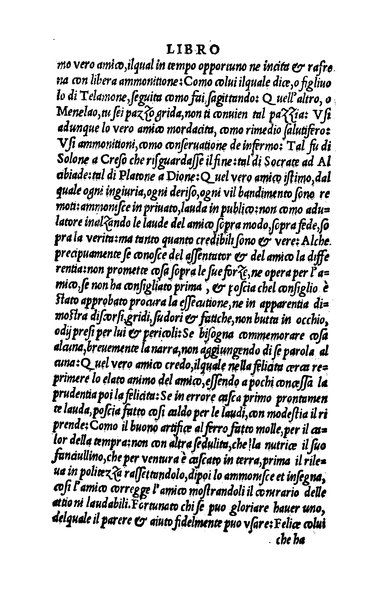 LIBRO
mo vero amico, ilqual in tempo opportuno ne incita & rafre
na con libera ammonitione: Como colui ilquale dice, o figliuo
lo di Telamone, seguita como fai, sagittando: Quell'altro, o
Menelao, tu sei pazzo grida, ntì conuien tal pazzia: Vsi
adunque lo vero amico mordacita, como rimedio salutifero:
Vsi ammonitioni, como conseruatione de infermo: Tal fu di
Solone a Creso che risguardasse il fine: tal di Socrate ad Al
abiade: tal di Platone a Dione: Quel vero amico istimo, dal
quale ogni ingiuria, ogni deriso, ogni vil bandimento sono re
moti: ammonisce in priuato, lauda in publico: non como adu=
latore inalzando le laude del amico sopra modo, sopra fede, so
pra la verita: ma tanto quanto credibili sono & vere: Alche
precipuamente se conosce del assentator & del amico la diffe
rentia: non promette cosa sopra le sue forze, ne opera per l'a=
mico, se non ha consigliato prima, & poscia chel consiglio è
stato approbato procura la essecutione, ne in apparentia di=
mostra discorsi, gridi, sudori & fatiche, non butta in occhio,
odij presi per lui & pericoli: Se bisogna commemorare cosa
alcuna, breuemente la narra, non aggiungendo di se parola al
cuna: Quel vero amico credo, ilquale nella felicita cerca re=
primere lo elato animo del amico, essendo a pochi concessa la
prudentia poi la felicita: Se in errore casca primo prontamen
te lauda, poscia fatto così caldo per le laudi, con modestia il ri
prende: Como il buono artifice al ferro fatto molle, per il ca=
lor della tempra: non con altra sedulita, che la nutrice il suo
fanciullino, che per ventura è cascato in terra, prima il rile=
ua in politezza rassettandolo, dipoi lo ammonisce et insegna,
cosi l'amico corregge l'amico mostrandoli il contrario delle
attioni laudabili. Fortunato chi se puo gloriare hauer uno,
delquale il parere & aiuto fidelmente puo vsare: Felice colui
che ha